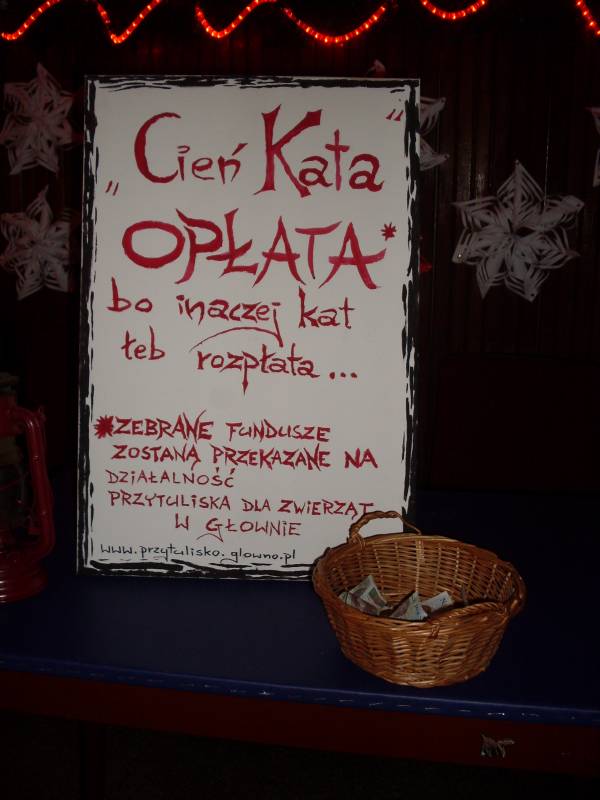 „Cień Kata"
OPŁATA*
bo inaczej kat
łeb rozpłata...
*ZEBRANE FUNDUSZE
ZOSTANĄ PRZEKAZANE NA
DZIAŁALNOŚĆ
PRZYTULISKA DLA ZWIERZĄT
W GŁOWNIE
www.przytulisko.glowno.pl